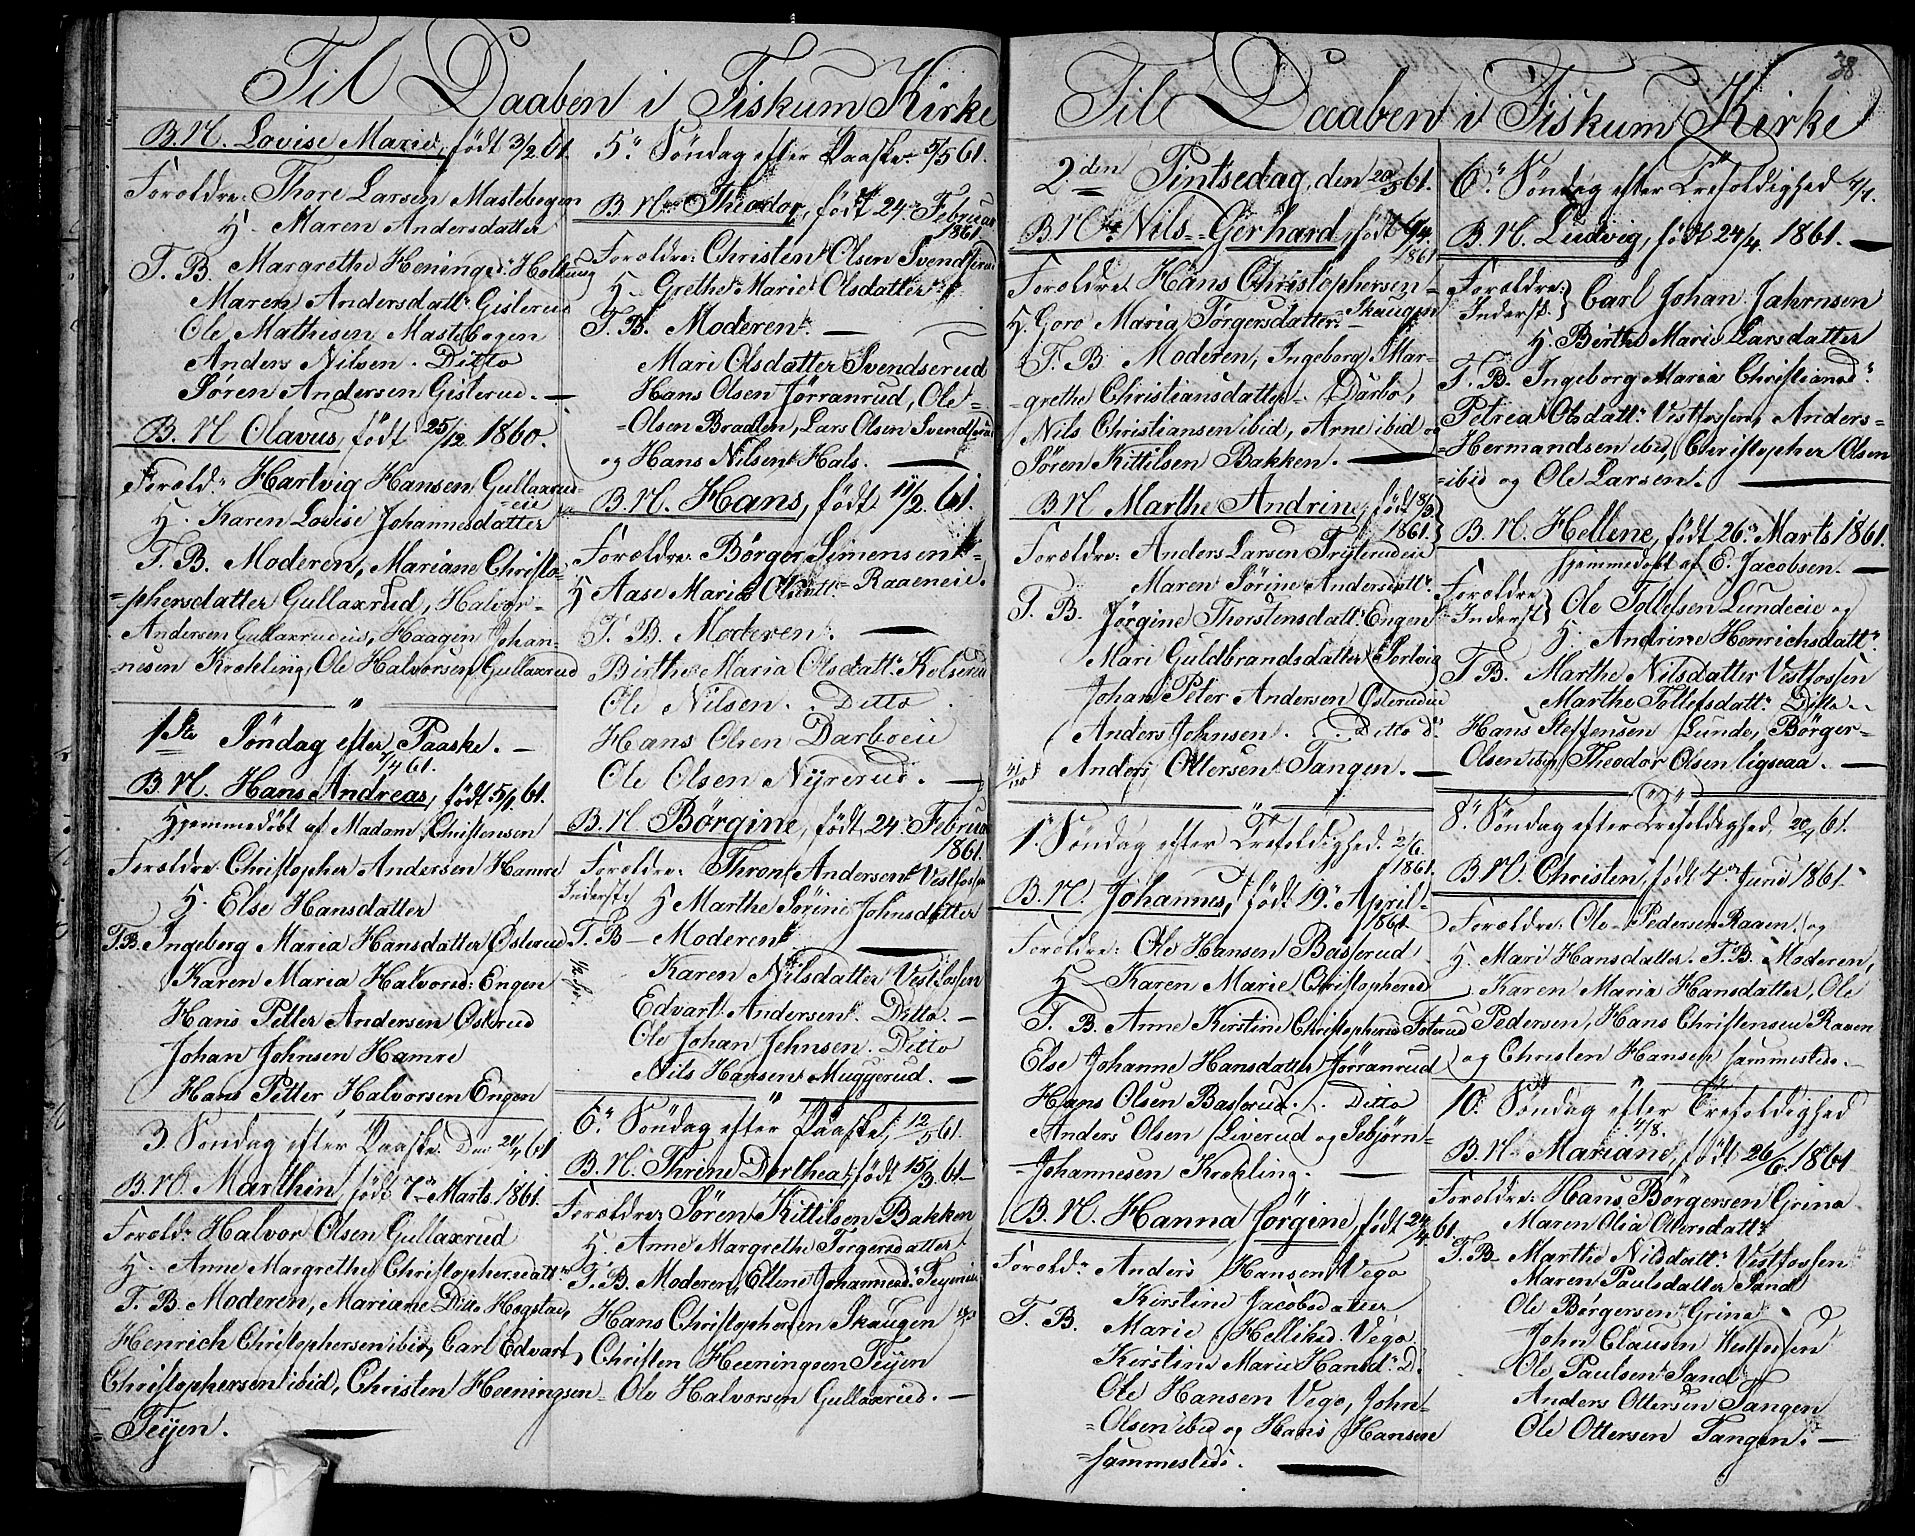 Til Daaben i Fiskum Kirke
B. N. Lovise Marie, født 3/2 61.
Forældre: Thore Larsen Mastebogen
H. Maren Andersdatter
T. B. Margrethe Heningsd: Holtung
Maren Andersdatt: Gislerud
Ole Mathisen Mastebogen
Anders Nilsen. Ditto
Søren Andersen Gislerud. —
B. N. Olavus, født 25/12. 1860.
Foræld: Hartvig Hansen Gullaxrud-
eie
H. Karen Lovise Johannesdatter
T. B. Moderen, Mariane Christo-
=phersdatter Gullaxrud, Halvor-
Andersen Gullaxrudeie, Haagen Johan-
nesen Krekling, Ole Halvorsen Gullaxrud
1ste Søndag efter Paaske. —
7/4 61.
B. N. Hans Andreas, født 5/1 61.
Hjemmedøbt af Madam Christensen
Forældre Christopher Andersen Hamre
H. Else Hansdatter
T. B. Ingeborg Maria Hansdatter Østerud
Karen Maria Halvorsd: Engen
Hans Petter Andersen Østerud
Johan Johnsen Hamre
Hans Petter Halvorsen Engen
3 Søndag efter Paaske. Den 21/4 61
B. N. Marthin, født 7de Marts 1861.
Foræld: Halvor Olsen Gullaxrud
H. Anne Margrethe Christophersdatt:
T. B. Moderen, Mariane Ditto Hogstad,
Henrich Christophersen ibid, Carl Edvart
Christophersen ibid, Christen Heeningsen
Teijen. —
5: Søndag efter Paaske 5/5 61.
B. N. Theodor, født 24: Februar
1861.
Forældre: Christen Olsen Svendserud
H. Grethe Marie Olsdatter
T. B. Moderen. —
Mari Olsdatter Svendserud
Hans Olsen Jørranrud, Ole-
=Olsen Braaten, Lars Olsen Svendserud
og Hans Nilsen Hals. —
B. N. Hans, født 11/2. 61.
Forældre: Børger Simensen
H Aase Maria Olsdatt:- Raaeneie.
T. B. Moderen. —
Birthe Maria Olsdatt: Kolserud
Ole Nilsen. Ditto
Hans Olsen Darboeie
Ole Olsen Nyrerud. —
B. N Børgine, født 24 Februar
1861.
Forældre: Thron Andersen Vestfossen
Inderst: H Marthe Sørine Johnsdatter
T. B — Moderen —
Karen Nilsdatter Vestfossen
Edvart Andersen. Ditto. —
Ole Johan Johnsen. Ditto
Nils Hansen Muggerud. —
6: Søndag efter Paaske, 12/5 61.
B. N. Thrine Dorthea, født 15/3 61.
Forældre: Søren Kittilsen Bakken
H. Anne Margrethe Torgersdatter
T. B. Moderen, Ellene Johannesd: Teijeneie
Hans Christophersen Skaugen
Christen Heeningsen Teijen
Ole Halvorsen Gullaxrud. —
38.
Til Daaben i Fiskum Kirke
2den Pintsedag, den 20/5 61.
B. N. Nils Gerhard, født 6/4.
1861
Forældre Hans Christophersen-
-Skaugen
H. Goro Maria Torgersdatter.
T. B. Moderen, Ingeborg Mar-
-grethe Christiansdatter Darbo,
Nils Christiansen ibid, Arne ibid og
Søren Kittilsen Bakken. —
B. N Marthe Andrine, født 18/3
1861.
Forældre: Anders Larsen Frylerudeie
Maren Sørine Andersdatt:
T. B. Jørgine Thorstensdatt: Engen
Mari Guldbrandsdatter Sorlvig
Johan Peter Andersen Østerudeie
Anders Johnsen. Ditto D:
Anders Ottersen Tangen. —
1: Søndag efter Trefoldighed. 2/6.
1861.
B. N. Johannes, født 19: April
1861
Forældre: Ole Hansen Basserud
H Karen Marie Christophersd
T. B. Anne Kirstine Christophersd Foterud
Else Johanne Hansdatter Jørranrud
Hans Olsen Basserud. Ditto
Anders Olsen Liverud og Sebjørn-
-Johannesen Krekling. —
B. N. Hanna Jørgine, født 24/4 61.
Foræld: Anders Hansen Vego
Kirstine Jacobsdatter
T. B. Marie Helliksd. Vego
Kirstine Marie Hansd: D:
Ole Hansen Vego, John-
=Olsen ibid og Hans Hansen
sammesteds. —
6: Søndag efter Trefoldighed 7/7.
B. N. Ludvig, født 24/4. 1861. —
Forældre:
Inderst: } Carl Johan Jahrnsen
H. Birthe Marie Larsdatter
T. B. Ingeborg Maria Christiansd:
Petrea Olsdatt: Vestfossen, Anders-
=Hermandsen ibid, Christopher Olsen
=ibid og Ole Larsen. —
B. N. Hellene, født 26: Marts 1861.
hjemmedøbt af E. Jacobsen. —
Forældre
Inderst } Ole Tollefsen Lundeeie og
H. Andrine Henrichsdatt:
T. B. Marthe Nilsdatter Vestfossen
Marthe Tollefsdatt: Ditto
Hans Steffensen Lunde, Børger-
Olsen ibid, Theodor Olsen Ligseaa. —
8: Søndag efter Trefoldighed, 20/7 61.
B. N. Christen, født 4de Juni 1861.
Forældre: Ole Pedersen Raaen og
H. Mari Hansdatter. T. B. Moderen,
Karen Maria Hansdatter, Ole
Pedersen, Hans Christensen Raaen
og Christen Hansen sammesteds. —
10: Søndag efter Trefoldighed
4/8.
B. N. Mariane, født 26/6. 1861
Forældre: Hans Børgersen Grina
Maren Olea Olversdatt:
T. B. Marthe Nilsdatt: Vestfossen
Maren Paulsdatter Sand
Ole Børgersen Grina
John Clausen Vestfossen
Ole Paulsen Sand
Anders Ottersen Tangen
Ole Ottersen Tangen. —